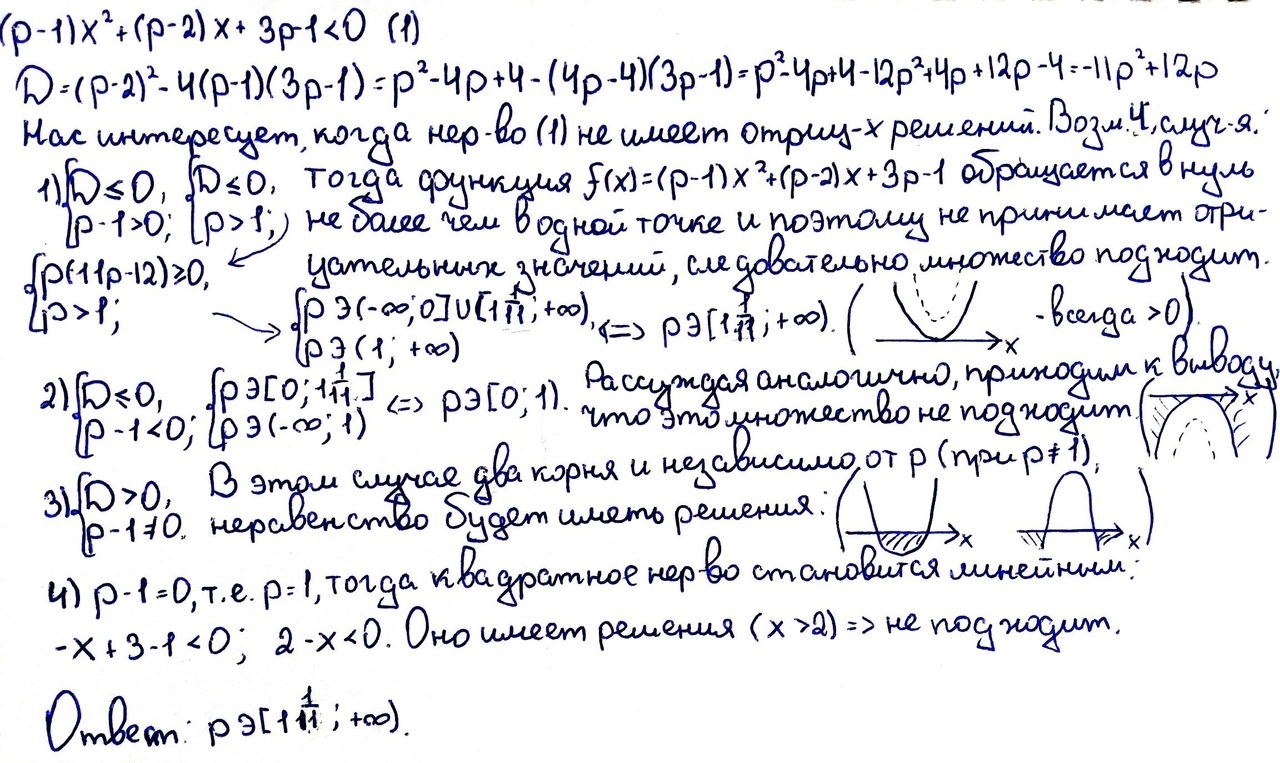 (p-1)x²+(p-2)x+3p-1<0 (1)
D=(p-2)²-4(p-1)(3p-1)=p²-4p+4-(4p-4)(3p-1)=p²-4p+4-12p²+4p+12p-4=-11p²+12p
Нас интересует, когда нер-во (1) не имеет отриц-х решений. Возм. 4 случ-я:
1) {D≤0, p-1>0; {D≤0, p>1; тогда функция f(x)=(p-1)x²+(p-2)x+3p-1 обращается в нуль
не более чем в одной точке и поэтому не принимает отри-
{p(11p-12)≥0, p>1; цательных значений, следовательно, множество подходит.
{p∋(-∞;0]∪[1 1/11;+∞), p∋(1;+∞) <=> p∋[1 1/11;+∞). ( x -всегда >0).
2) {D≤0, p-1<0; {p∋[0;1 1/11] p∋(-∞;1) <=> p∋[0;1). Рассуждая аналогично, приходим к выводу,
что это множество не подходит. ( x )
3) {D>0, p-1≠0. В этом случае два корня и независимо от p (при p≠1),
неравенство будет иметь решения: ( x x )
4) p-1=0, т.е. p=1, тогда квадратное нер-во становится линейным:
-x+3-1<0; 2-x<0. Оно имеет решения (x>2) => не подходит.
Ответ: p∋[1 1/11;+∞).